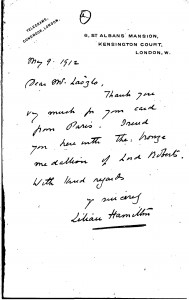 2
TELEGRAMS,
CONGROOK, LONDON.
9, ST ALBANS' MANSION,
KENSINGTON COURT,
LONDON, W.
May 9. 1912
Dear Mr. László,
Thank you
vy much for your card
from Paris. I send
you here with the bronze
medallion of Lord Roberts.
With kind regards
y sincerely
Lilian Hamilton